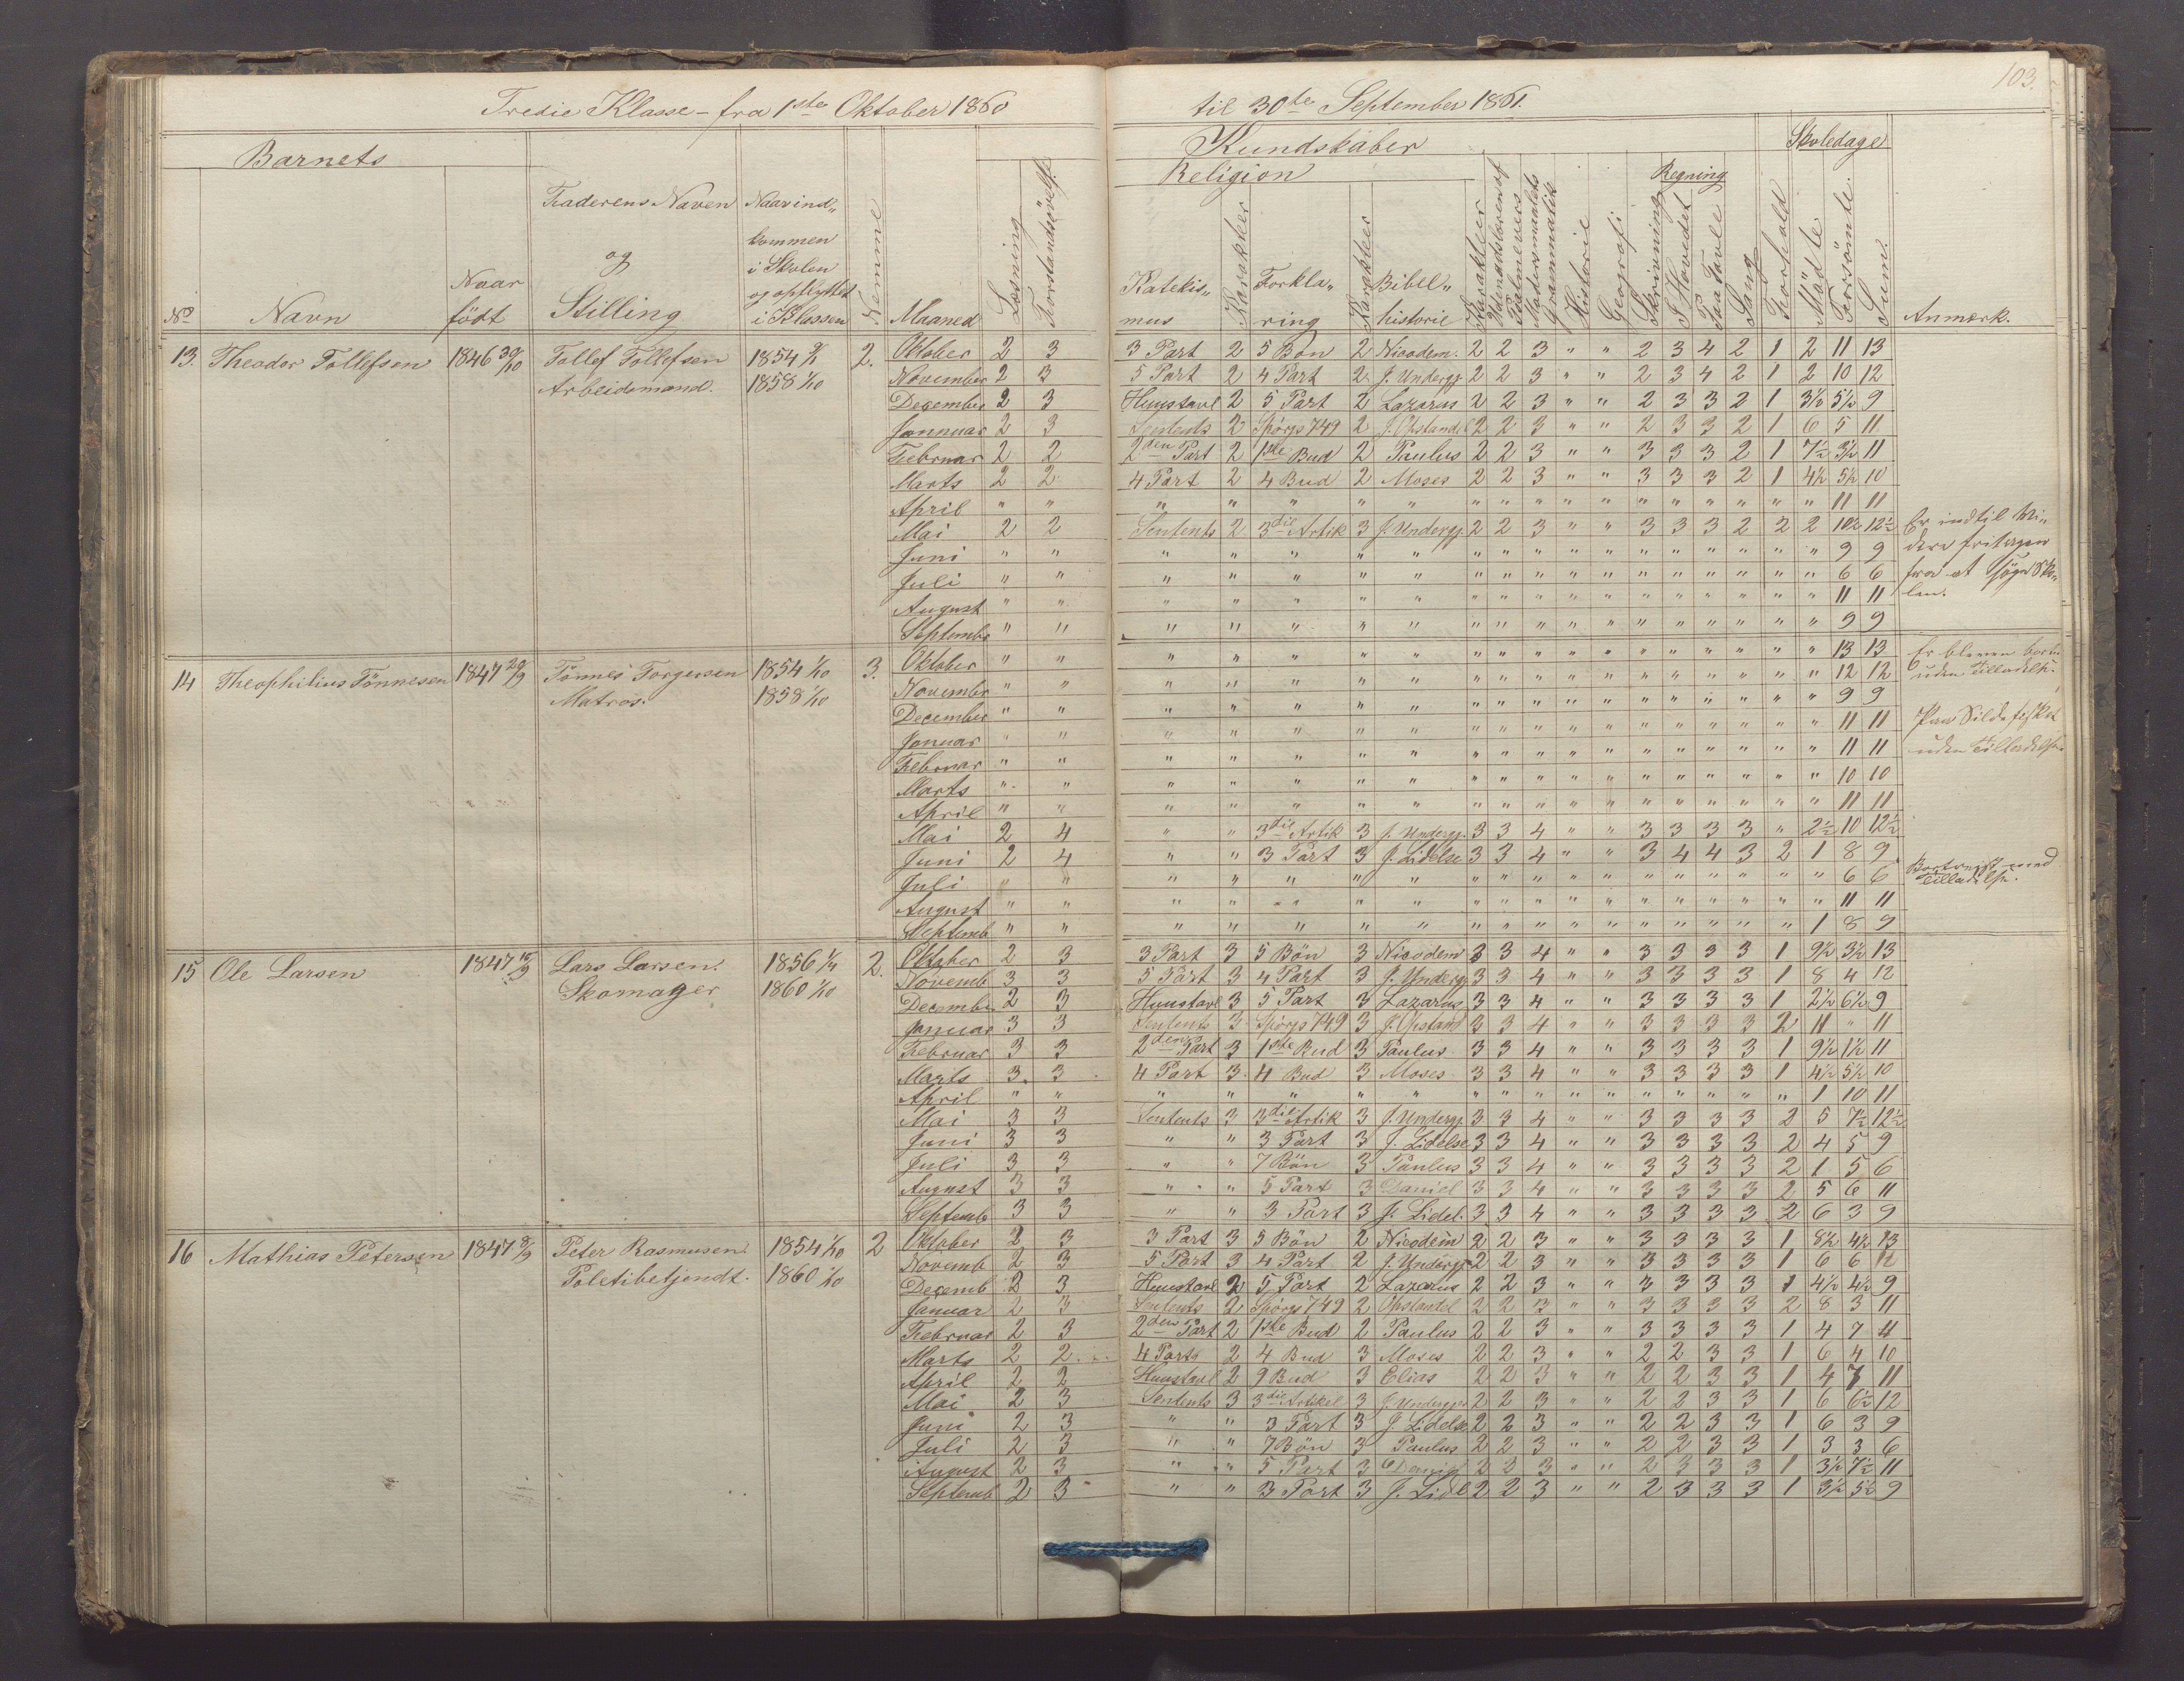 103.
Tredie Klasse - fra 1ste Oktober 1860 til 30te September 1861.
Barnets Kundskaber Skoledage
Religion Regning
No Navn Naar födt Faderens Naven og Stilling Naar ind„ kommen i Skolen og opflyttet i Klassen Nemme Maaned Læsning Forstandsövels. Katekis„ mus Karakteer Forkla„ ring Karakteer Bibel„ historie Karakteer Udenadslæren af Psalmevers Modersmaalets Grammatik Historie Geografi Skrivning I Hovedet Paa Tavle Sang Forhold Mödte Forsömte Sum. Anmerk.
13. Theodor Tollefsen 1846 30/10 Tollef Tollefsen 1854 2. Oktober 2 3 3 Part 2 5 Bön 2 Nicodem. 2 2 3 " " 2 3 4 2 1 2 11 13
Arbeidsmand. 1858 1/10 November 2 3 5 Part 2 4 Part 2 J. Undergj. 2 2 3 " " 2 3 4 2 1 2 10 12
December 2 3 Huustavl 2 5 Part 2 Lazarus 2 2 3 " " 2 3 3 2 1 3½ 5½ 9
Januar 2 3 Sentents 2 Spörgs 749 2 J. Opstandel 2 2 3 " " 2 3 3 2 1 6 5 11
Februar 2 2 2den Part 2 1ste Bud 2 Paulus 2 2 3 " " 3 3 3 2 1 7½ 3½ 11
Marts 2 2 4 Part 2 4 Bud 2 Moses 2 2 3 " " 3 3 3 2 1 4½ 5½ 10
April " " " " " " " " " " " " " " " " " " 11 11
Mai 2 2 Sentents 2 3die Artik 3 J. Undergj. 2 2 3 " " 3 3 3 2 2 2 10½ 12½ Er indtil Vin
Juni " " " " " " " " " " " " " " " " " " 9 9 dere fritagen
Juli " " " " " " " " " " " " " " " " " " 6 6 fra at söge Sko
August " " " " " " " " " " " " " " " " " " 11 11 len.
Septembr " " " " " " " " " " " " " " " " " " 9 9
14 Theophilius Tönnesen 1847 29/9 Tönnes Torgersen 1854 1/10 3. Oktober " " " " " " " " " " " " " " " " " " 13 13 Er bleven borte
Matros. 1858 1/10 Novembr " " " " " " " " " " " " " " " " " " 12 12 uden Tilladelse.
December " " " " " " " " " " " " " " " " " " 9 9
Januar " " " " " " " " " " " " " " " " " " 11 11 Paa Sildefisket
Februar " " " " " " " " " " " " " " " " " " 11 11 uden Tilladelse.
Marts " " " " " " " " " " " " " " " " " " 10 10
April " " " " " " " " " " " " " " " " " " 11 11
Mai 2 4 " " 3die Artik 3 J. Undergj. 3 3 4 " " 3 3 3 3 " 2½ 10 12½
Juni 2 4 " " 3 Part 3 J. Lidelse 3 3 4 " " 3 4 4 3 2 1 8 9
Juli " " " " " " " " " " " " " " " " " " 6 6 Bortreist med Tilladelse.
August " " " " " " " " " " " " " " " " " " 11 11
Septemb " " " " " " " " " " " " " " " " " 1 8 9
15 Ole Larsen 1847 15/9 Lars Larsen. 1856 1/4 2. Oktober 2 3 3 Part 3 5 Bön 3 Nicodem 3 3 4 " " 3 3 3 3 1 9½ 3½ 13
Skomager 1860 1/10 Novemb 3 3 5 Part 3 4 Part 3 J. Undergj 3 3 4 " " 3 3 3 3 1 8 4 12
December 2 3 Huustavl 3 5 Part 3 Lazarus 3 3 4 " " 3 3 3 3 1 2½ 6½ 9
Januar 3 3 Sentents 3 Spörgs 749 3 J. Opstand 3 3 4 " " 3 3 3 3 2 11 " 11
Februar 3 3 2den Part 3 1ste Bud 3 Paulus 3 3 4 " " 3 3 3 3 1 9½ 1½ 11
Marts 3 3 4 Part 3 4 Bud 3 Moses 3 3 4 " " 3 3 3 3 1 4½ 5½ 10
April " " " " " " " " " " " " " " " " " 1 10 11
Mai 3 3 Sentents 3 3die Artik 3 J. Undergj 3 3 4 " " 3 3 3 3 2 5 7½ 12½
Juni 3 3 " " 3 Part 3 J. Lidelse 3 3 4 " " 3 3 3 3 2 4 5 9
Juli 3 3 " " 7 Bön 3 Paulus 3 3 4 " " 3 3 3 3 2 1 5 6
August 3 3 " " 5 Part 3 Daniel 3 3 4 " " 3 3 3 3 2 5 6 11
Septemb 3 3 " " 3 Part 3 J. Lidel. 3 3 4 " " 3 3 3 3 2 6 3 9
16 Mathias Petersen 1847 8/9 Peter Rasmusen. 1854 1/10 2 Oktober 2 3 3 Part 3 5 Bön 2 Nicodem 2 2 3 " " 3 3 3 3 1 8½ 4½ 13
Poletibetjendt. 1860 1/10 Novemb 2 3 5 Part 3 4 Part 2 J. Undergj 2 2 3 " " 3 3 3 3 1 6 6 12
Decemb 2 3 Huustavl 2 5 Part 2 Lazarus 2 2 3 " " 3 3 3 3 1 4½ 4½ 9
Januar 2 3 Sentents 2 Spörgs 749 2 Opstandel 2 2 3 " " 3 3 3 3 2 8 3 11
Februar 2 3 2den Part 2 1ste Bud 2 Paulus 2 2 3 " " 3 3 3 3 1 4 7 11
Marts 2 2 4 Part 2 4 Bud 3 Moses 2 2 3 " " 2 2 3 3 1 6 4 10
April 2 2 Huustavl 2 9 Bud 3 Elias 2 2 3 " " 2 2 3 3 1 4 7 11
Mai 2 3 Sentents 3 3die Artikel 3 J. Undergj. 2 2 3 " " 2 2 3 3 1 6 6½ 12
Juni 2 3 " " 3 Part 3 J. Lidelse 2 2 3 " " 2 2 3 3 1 6 3 9
Juli 2 3 " " 7 Bön 3 Paulus 2 2 3 " " 2 2 3 3 1 3 3 6
August 2 3 " " 5 Part 3 Daniel 2 2 3 " " 2 3 3 3 1 3½ 7½ 11
Septemb 2 3 " " 3 Part 3 J. Lidl 2 2 3 " " 2 3 3 3 1 3½ 5½ 9